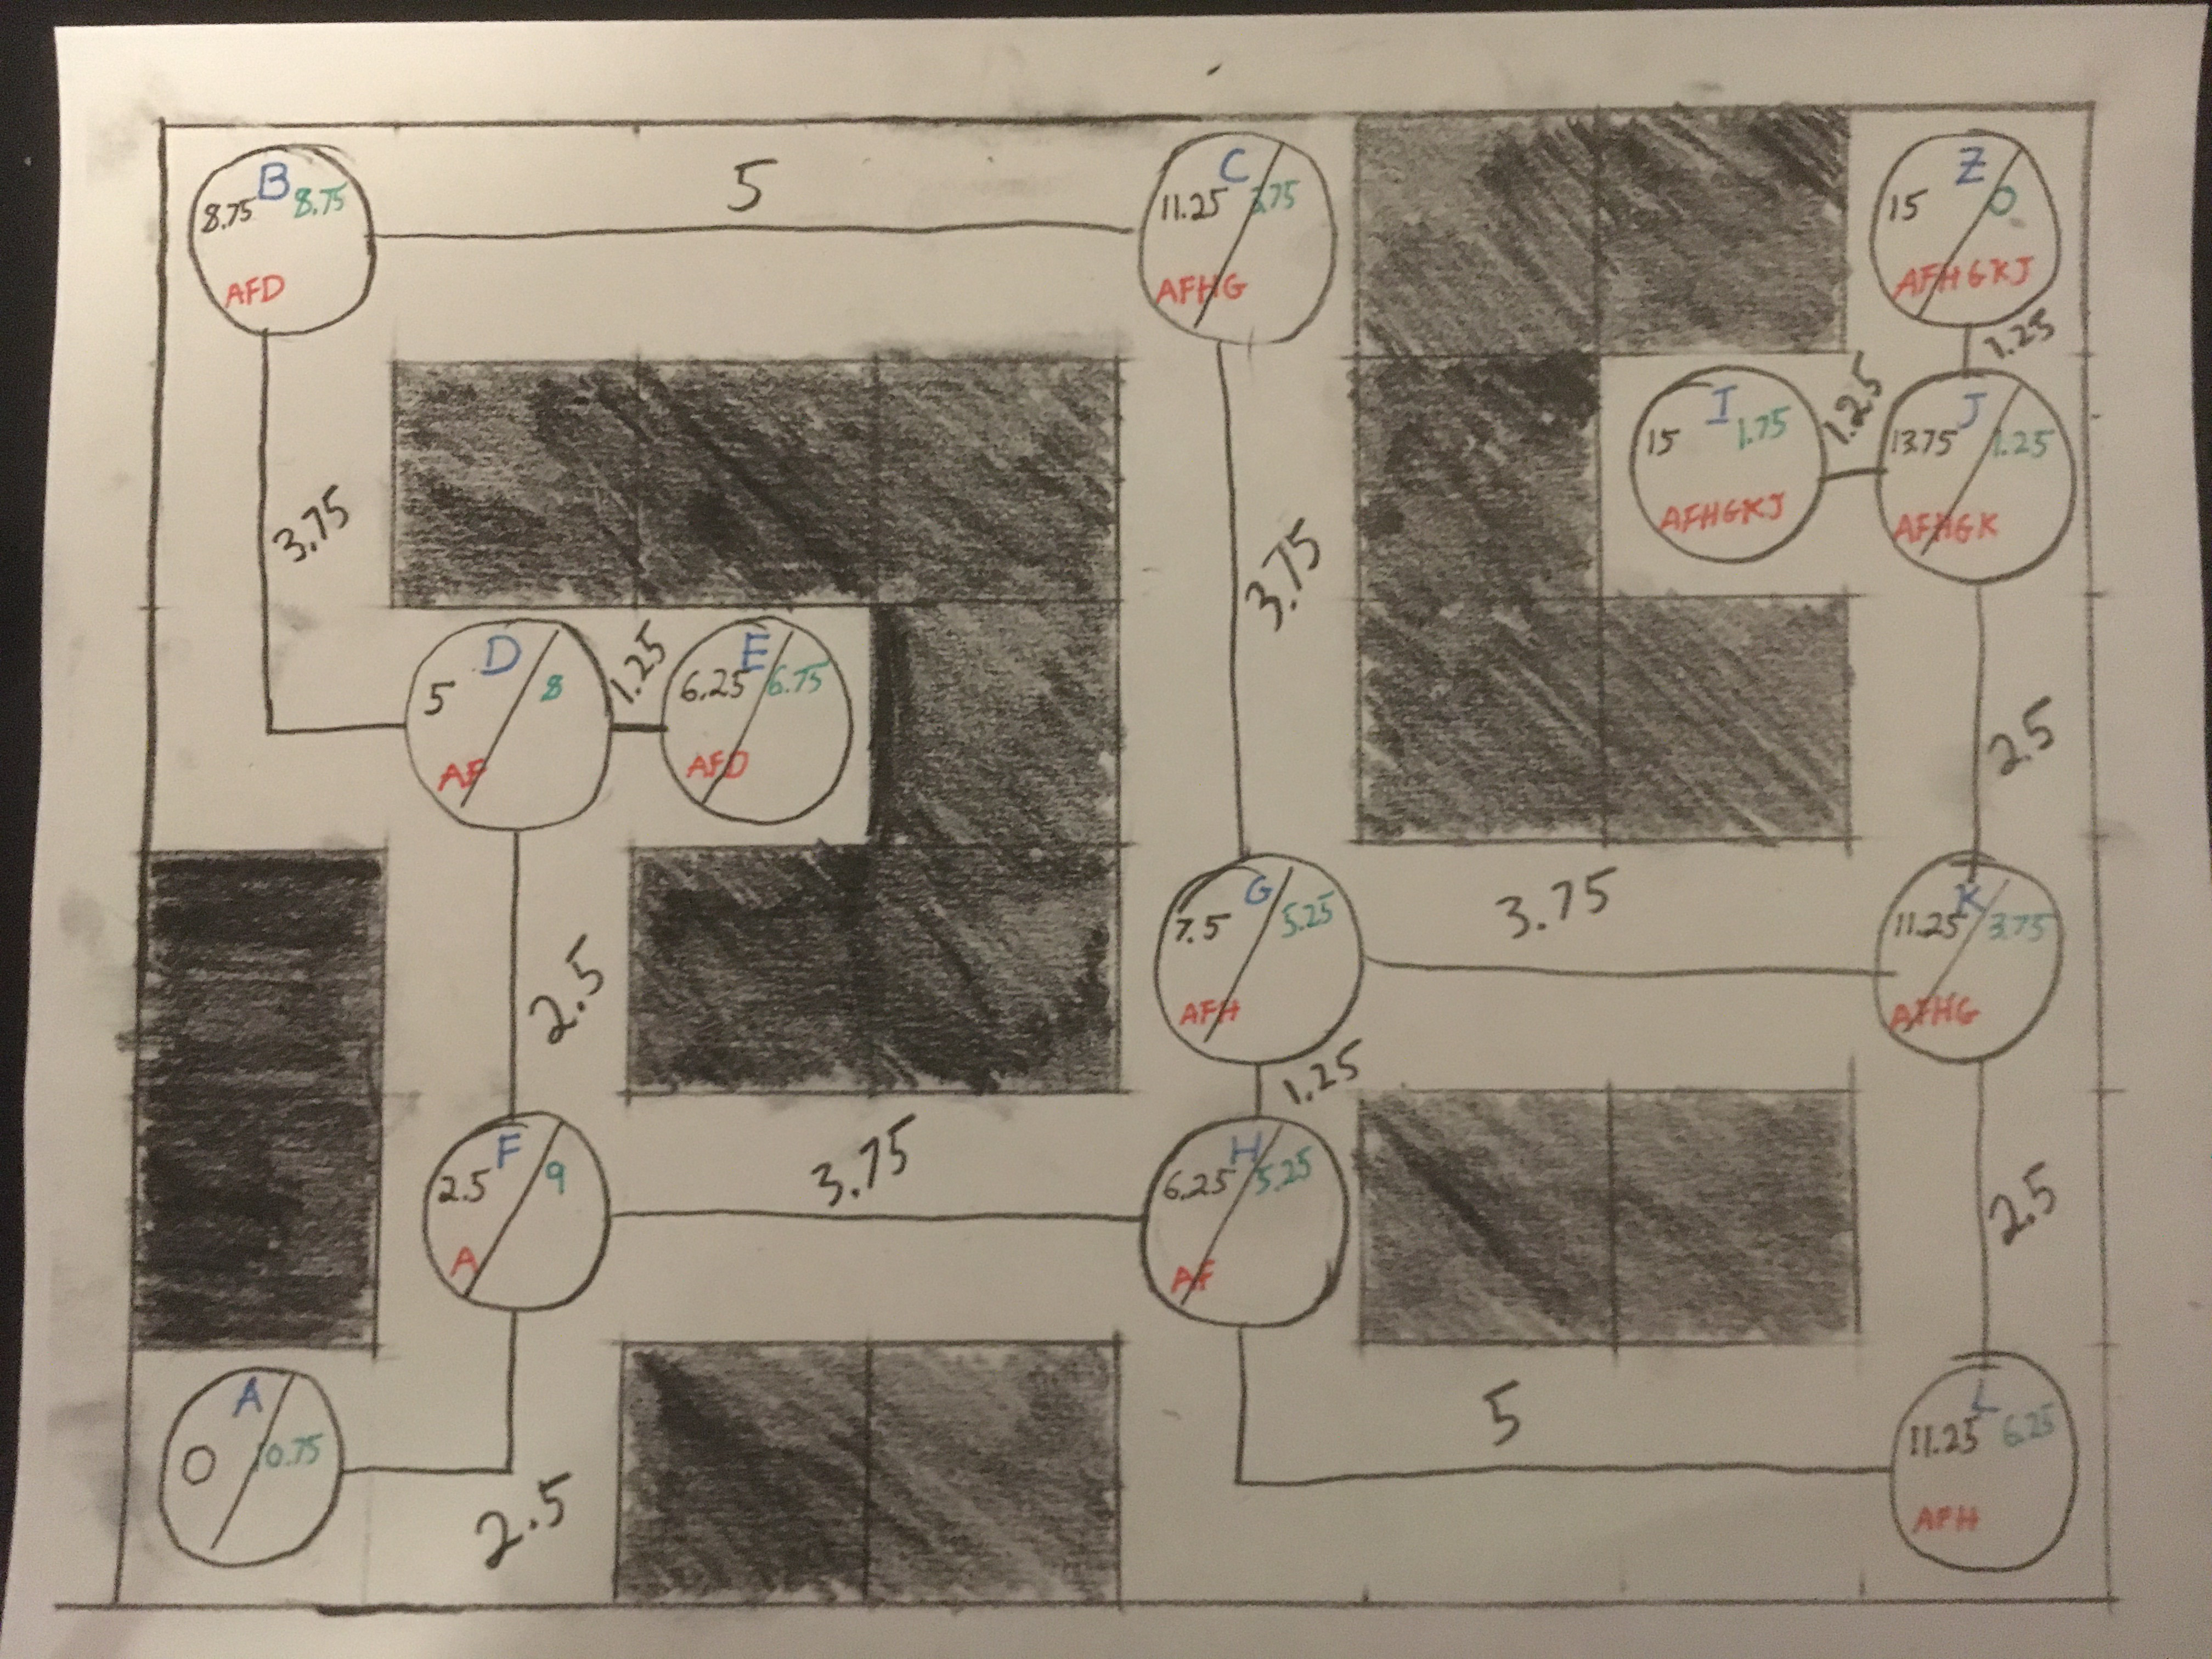 B
8.75 8.75
AFD
5
C
11.25 3.75
AFHG
Z
15 0
AFHGKJ
1.25
I
15 1.75
AFHGKJ
1.25
J
13.75 1.25
AFHGK
3.75
3.75
D
5 8
AF
1.25
E
6.25 6.75
AFD
2.5
G
7.5 5.25
AFH
3.75
K
11.25 3.75
AFHG
2.5
1.25
F
2.5 9
A
3.75
H
6.25 5.25
AF
2.5
A
0 10.75
2.5
5
L
11.25 6.25
AFH